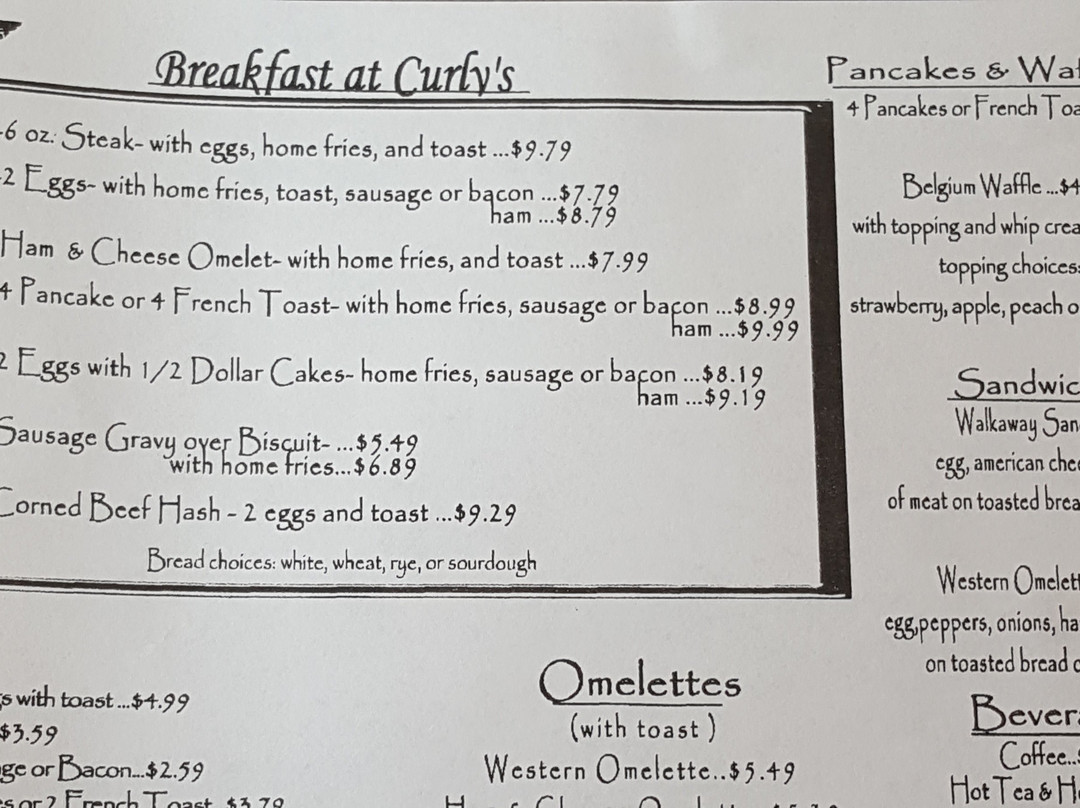 Breakfast at Curly's
6 oz. Steak- with eggs, home fries, and toast ...$9.79
2 Eggs- with home fries, toast, sausage or bacon ...$7.79
ham ...$8.79
Ham & Cheese Omelet- with home fries, and toast ...$7.99
4 Pancake or 4 French Toast- with home fries, sausage or bacon ...$8.99
ham ...$9.99
2 Eggs with 1/2 Dollar Cakes- home fries, sausage or bacon ...$8.19
ham ...$9.19
Sausage Gravy over Biscuit- ...$5.49
with home fries...$6.89
Corned Beef Hash - 2 eggs and toast ...$9.29
Bread choices: white, wheat, rye, or sourdough
with toast ...$4.99
$3.59
or Bacon...$2.59
or 2 French Toast $3.79
Omelettes
(with toast )
Western Omelette..$5.49
Pancakes &
4 Pancakes or French
Belgium Waffle ...$4
with topping and whip
topping choices:
strawberry, apple, peach
Walkaway
egg, american
of meat on toasted
Western
egg,peppers, onions,
on toasted bread
Coffee..
Hot Tea &